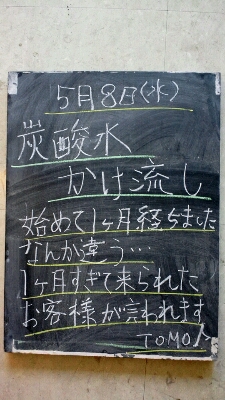 5月8日(水)
炭酸水
かけ流し
始めて1ヶ月経ちました
なんか違う…
1ヶ月すぎて来られた
お客様が言われます
TOMO